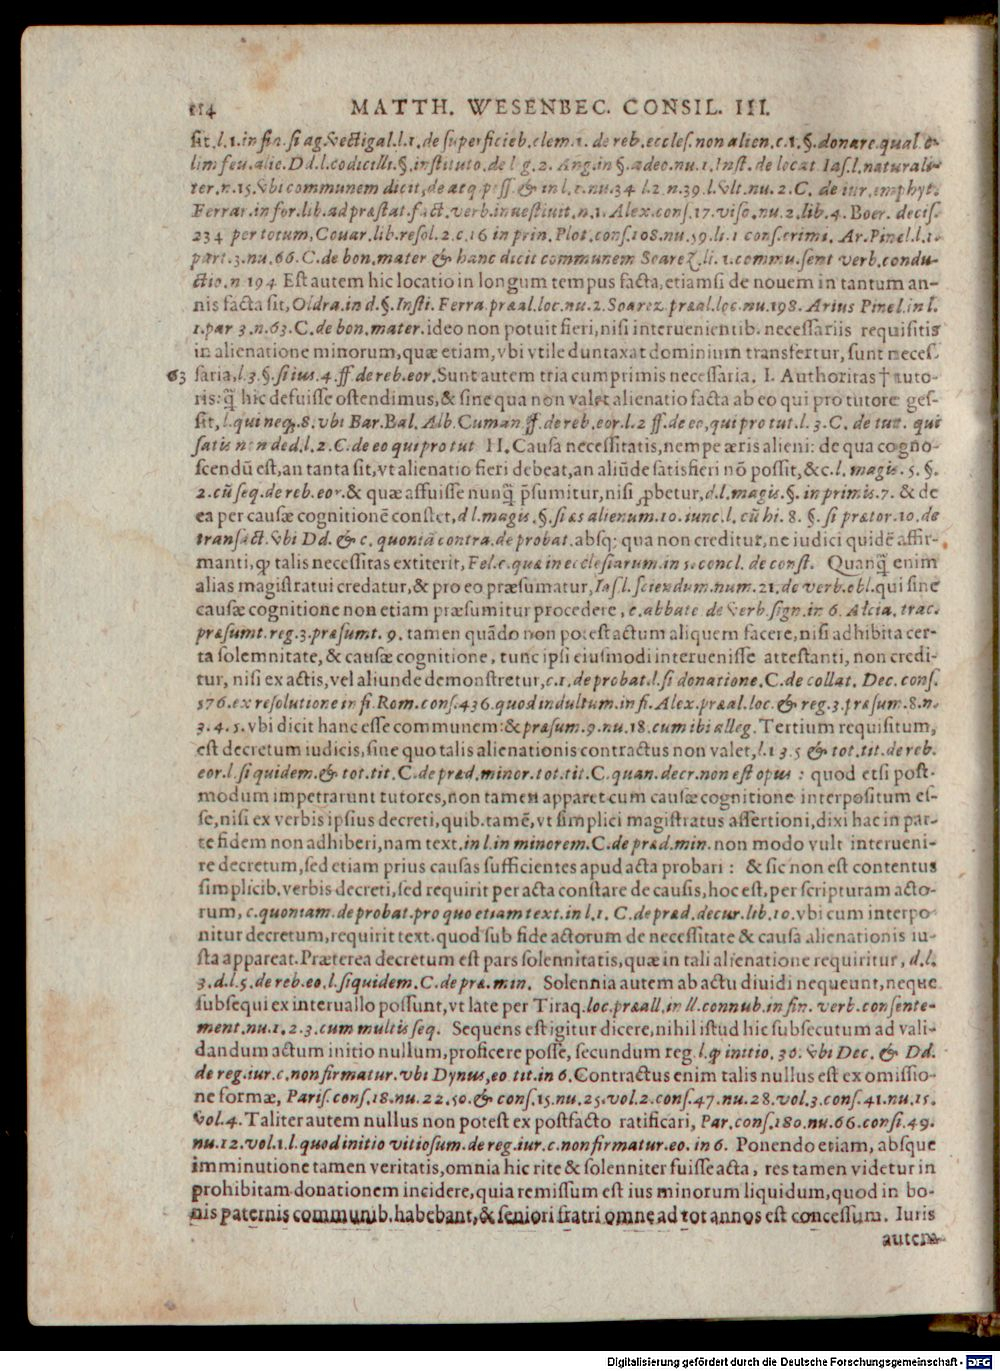 114 MATTH. WESENBEC. CONSIL. III.
sit, l. 1. in fin. si ag. vectigal. l. 1. de superficieb. clem. 1. de reb. eccles. non alien. c. 1. §. donare. qual. o-
lim feu. alie. Dd. l. codicillis. §. instituto. de leg. 2. Ang. in §. adeo. nu. 1. Inst. de locat. Ias. l. naturali-
ter, n. 15. vbi communem dicit, de acq. poss. & in l. 1. nu. 34 l. 2 n. 39. l. vlt. nu. 2. C. de iur. emphyt.
Ferrar. in for. lib. ad præstat. fact. verb. inuestiuit, n. 1. Alex. cons. 17. viso. nu. 2. lib. 4. Boer. decis.
234 per totum, Couar. lib. resol. 2. c. 16 in prin. Plot. cons. 108. nu. 59. li. 1 cons. crimi. Ar. Pinel. l. 1.
part. 3. nu. 66. C. de bon. mater & hanc dicit communem Soarez. li. 1. commu. sent verb. condu-
ctio. n 194 Est autem hic locatio in longum tempus facta, etiamsi de nouem in tantum an-
nis facta sit, Oldra. in d. §. Insti. Ferra. præal. loc. nu. 2. Soarez. præal. loc. nu. 198. Arius Pinel. in l.
1. par 3. n. 63. C. de bon. mater. ideo non potuit fieri, nisi interuenientib. necessariis requisitis
in alienatione minorum, quæ etiam, vbi vtile duntaxat dominium transfertur, sunt neces-
63 saria, l. 3. §. si ius. 4. ff. de reb. eor. Sunt autem tria cumprimis necessaria. I. Authoritas † tuto-
ris: q̃ hic defuisse ostendimus, & sine qua non valet alienatio facta ab eo qui pro tutore ges-
sit, l. qui neq;. 8. vbi Bar. Bal. Alb. Cuman. ff. de reb. eor. l. 2 ff. de eo, qui pro tut. l. 3. C. de tut. qui
satis non ded. l. 2. C. de eo qui pro tut II. Causa necessitatis, nempe æris alieni: de qua cogno-
scendũ est, an tanta sit, vt alienatio fieri debeat, an aliũde satisfieri nõ possit, &c. l. magis. 5. §.
2. cũ seq. de reb. eor. & quæ affuisse nunq̃ p̃sumitur, nisi ꝓbetur, d. l. magis. §. in primis. 7. & de
ea per causæ cognitionẽ constet, d l. magis. §. si æs alienum. 10. iunc. l. cũ hi. 8. §. si prætor. 10. de
transact. vbi Dd. & c. quoniã contra. de probat. absq; qua non creditur, ne iudici quidẽ affir-
manti, ꝙ talis necessitas extiterit, Fel. c. quæ in ecclesiarum. in 1. concl. de const. Quanq̃ enim
alias magistratui credatur, & pro eo præsumatur, Ias. l. sciendum. num. 21. de verb. obl. qui sine
causæ cognitione non etiam præsumitur procedere, c. abbate de verb. sign. in 6. Alcia. trac.
præsumt. reg. 3. præsumt. 9. tamen quãdo non potest actum aliquem facere, nisi adhibita cer-
ta solemnitate, & causæ cognitione, tunc ipsi eiusmodi interuenisse attestanti, non credi-
tur, nisi ex actis, vel aliunde demonstretur, c. 1. de probat. l. si donatione. C. de collat. Dec. cons.
576. ex resolutione in fi. Rom. cons. 436. quod indultum. in fi. Alex. præal. loc. & reg. 3. præsum. 8. n.
3. 4. 5. vbi dicit hanc esse communem: & præsum. 9. nu. 18. cum ibi alleg. Tertium requisitum,
est decretum iudicis, sine quo talis alienationis contractus non valet, l. 1 3. 5 & tot. tit. de reb.
eor. l. si quidem. & tot. tit. C. de præd. minor. tot. tit. C. quan. decr. non est opus: quod etsi post-
modum impetrarunt tutores, non tamen apparet cum causæ cognitione interpositum es-
se, nisi ex verbis ipsius decreti, quib. tamẽ, vt simplici magistratus assertioni, dixi hac in par-
te fidem non adhiberi, nam text. in l. in minorem. C. de præd. min. non modo vult interueni-
re decretum, sed etiam prius causas sufficientes apud acta probari: & sic non est contentus
simplicib. verbis decreti, sed requirit per acta constare de causis, hoc est, per scripturam acto-
rum, c. quoniam. de probat. pro quo etiam text. in l. 1. C. de præd. decur. lib. 10. vbi cum interpo-
nitur decretum, requirit text. quod sub fide actorum de necessitate & causa alienationis iu-
sta appareat. Præterea decretum est pars solennitatis, quæ in tali alienatione requiritur, d. l.
3. d. l. 5. de reb. eo. l. siquidem. C. de præ. min. Solennia autem ab actu diuidi nequeunt, neque
subsequi ex interuallo possunt, vt late per Tiraq. loc. præall. in ll. connub. in fin. verb. consente-
ment. nu. 1. 2. 3. cum multis seq. Sequens est igitur dicere, nihil istud hic subsecutum ad vali-
dandum actum initio nullum, proficere posse, secundum reg. l. ꝙ initio. 30. vbi Dec. & Dd.
de reg. iur. c. non firmatur. vbi Dynus, eo tit. in 6. Contractus enim talis nullus est ex omissio-
ne formæ, Paris. cons. 18. nu. 22. 50. & cons. 15. nu. 25. vol. 2. cons. 47. nu. 28. vol. 3. cons. 41. nu. 15.
vol. 4. Taliter autem nullus non potest ex postfacto ratificari, Par. cons. 180. nu. 66. consi. 49.
nu. 12. vol. 1. l. quod initio vitiosum. de reg. iur. c. non firmatur. eo. in 6. Ponendo etiam, absque
imminutione tamen veritatis, omnia hic rite & solenniter fuisse acta, res tamen videtur in
prohibitam donationem incidere, quia remissum est ius minorum liquidum, quod in bo-
nis paternis communib. habebant, & seniori fratri omne ad tot annos est concessum. Iuris
autem
Digitalisierung gefördert durch die Deutsche Forschungsgemeinschaft - DFG